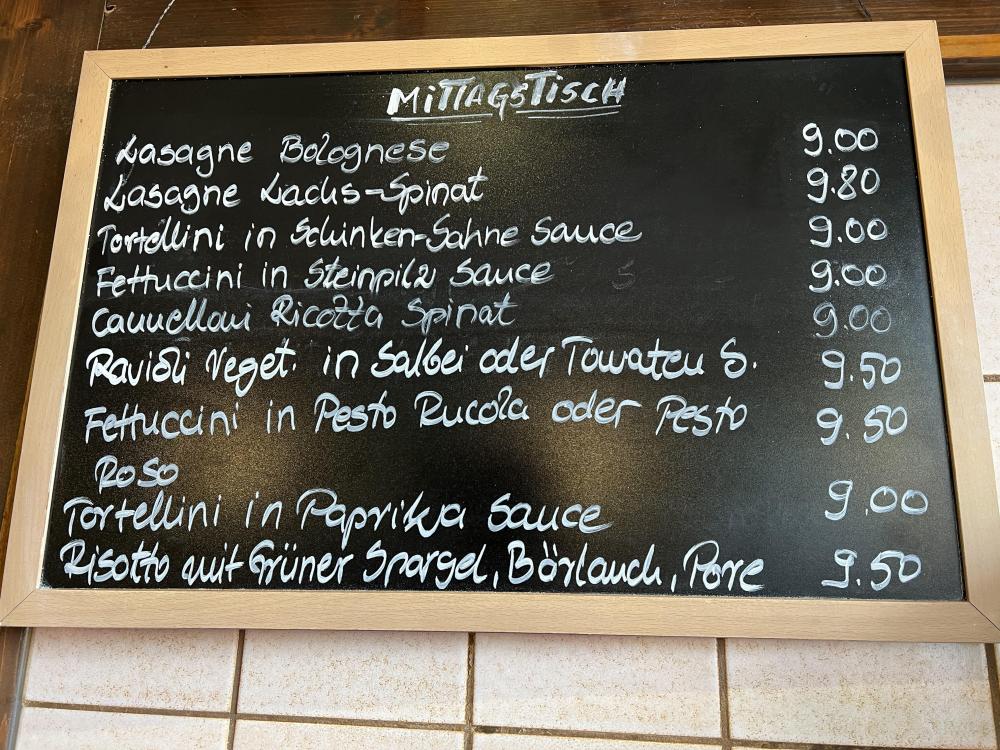 MITTAGSTISCH
Lasagne Bolognese 9.00
Lasagne Lachs-Spinat 9.80
Tortellini in Schinken-Sahne Sauce 9.00
Fettuccini in Steinpilz Sauce 9.00
Cannelloni Ricotta Spinat 9.00
Ravioli Veget. in Salbei oder Tomaten S. 9.50
Fettuccini in Pesto Rucola oder Pesto 9.50
Roso
Tortellini in Paprika Sauce 9.00
Risotto mit Grüner Spargel, Börlauch, Pore 9.50